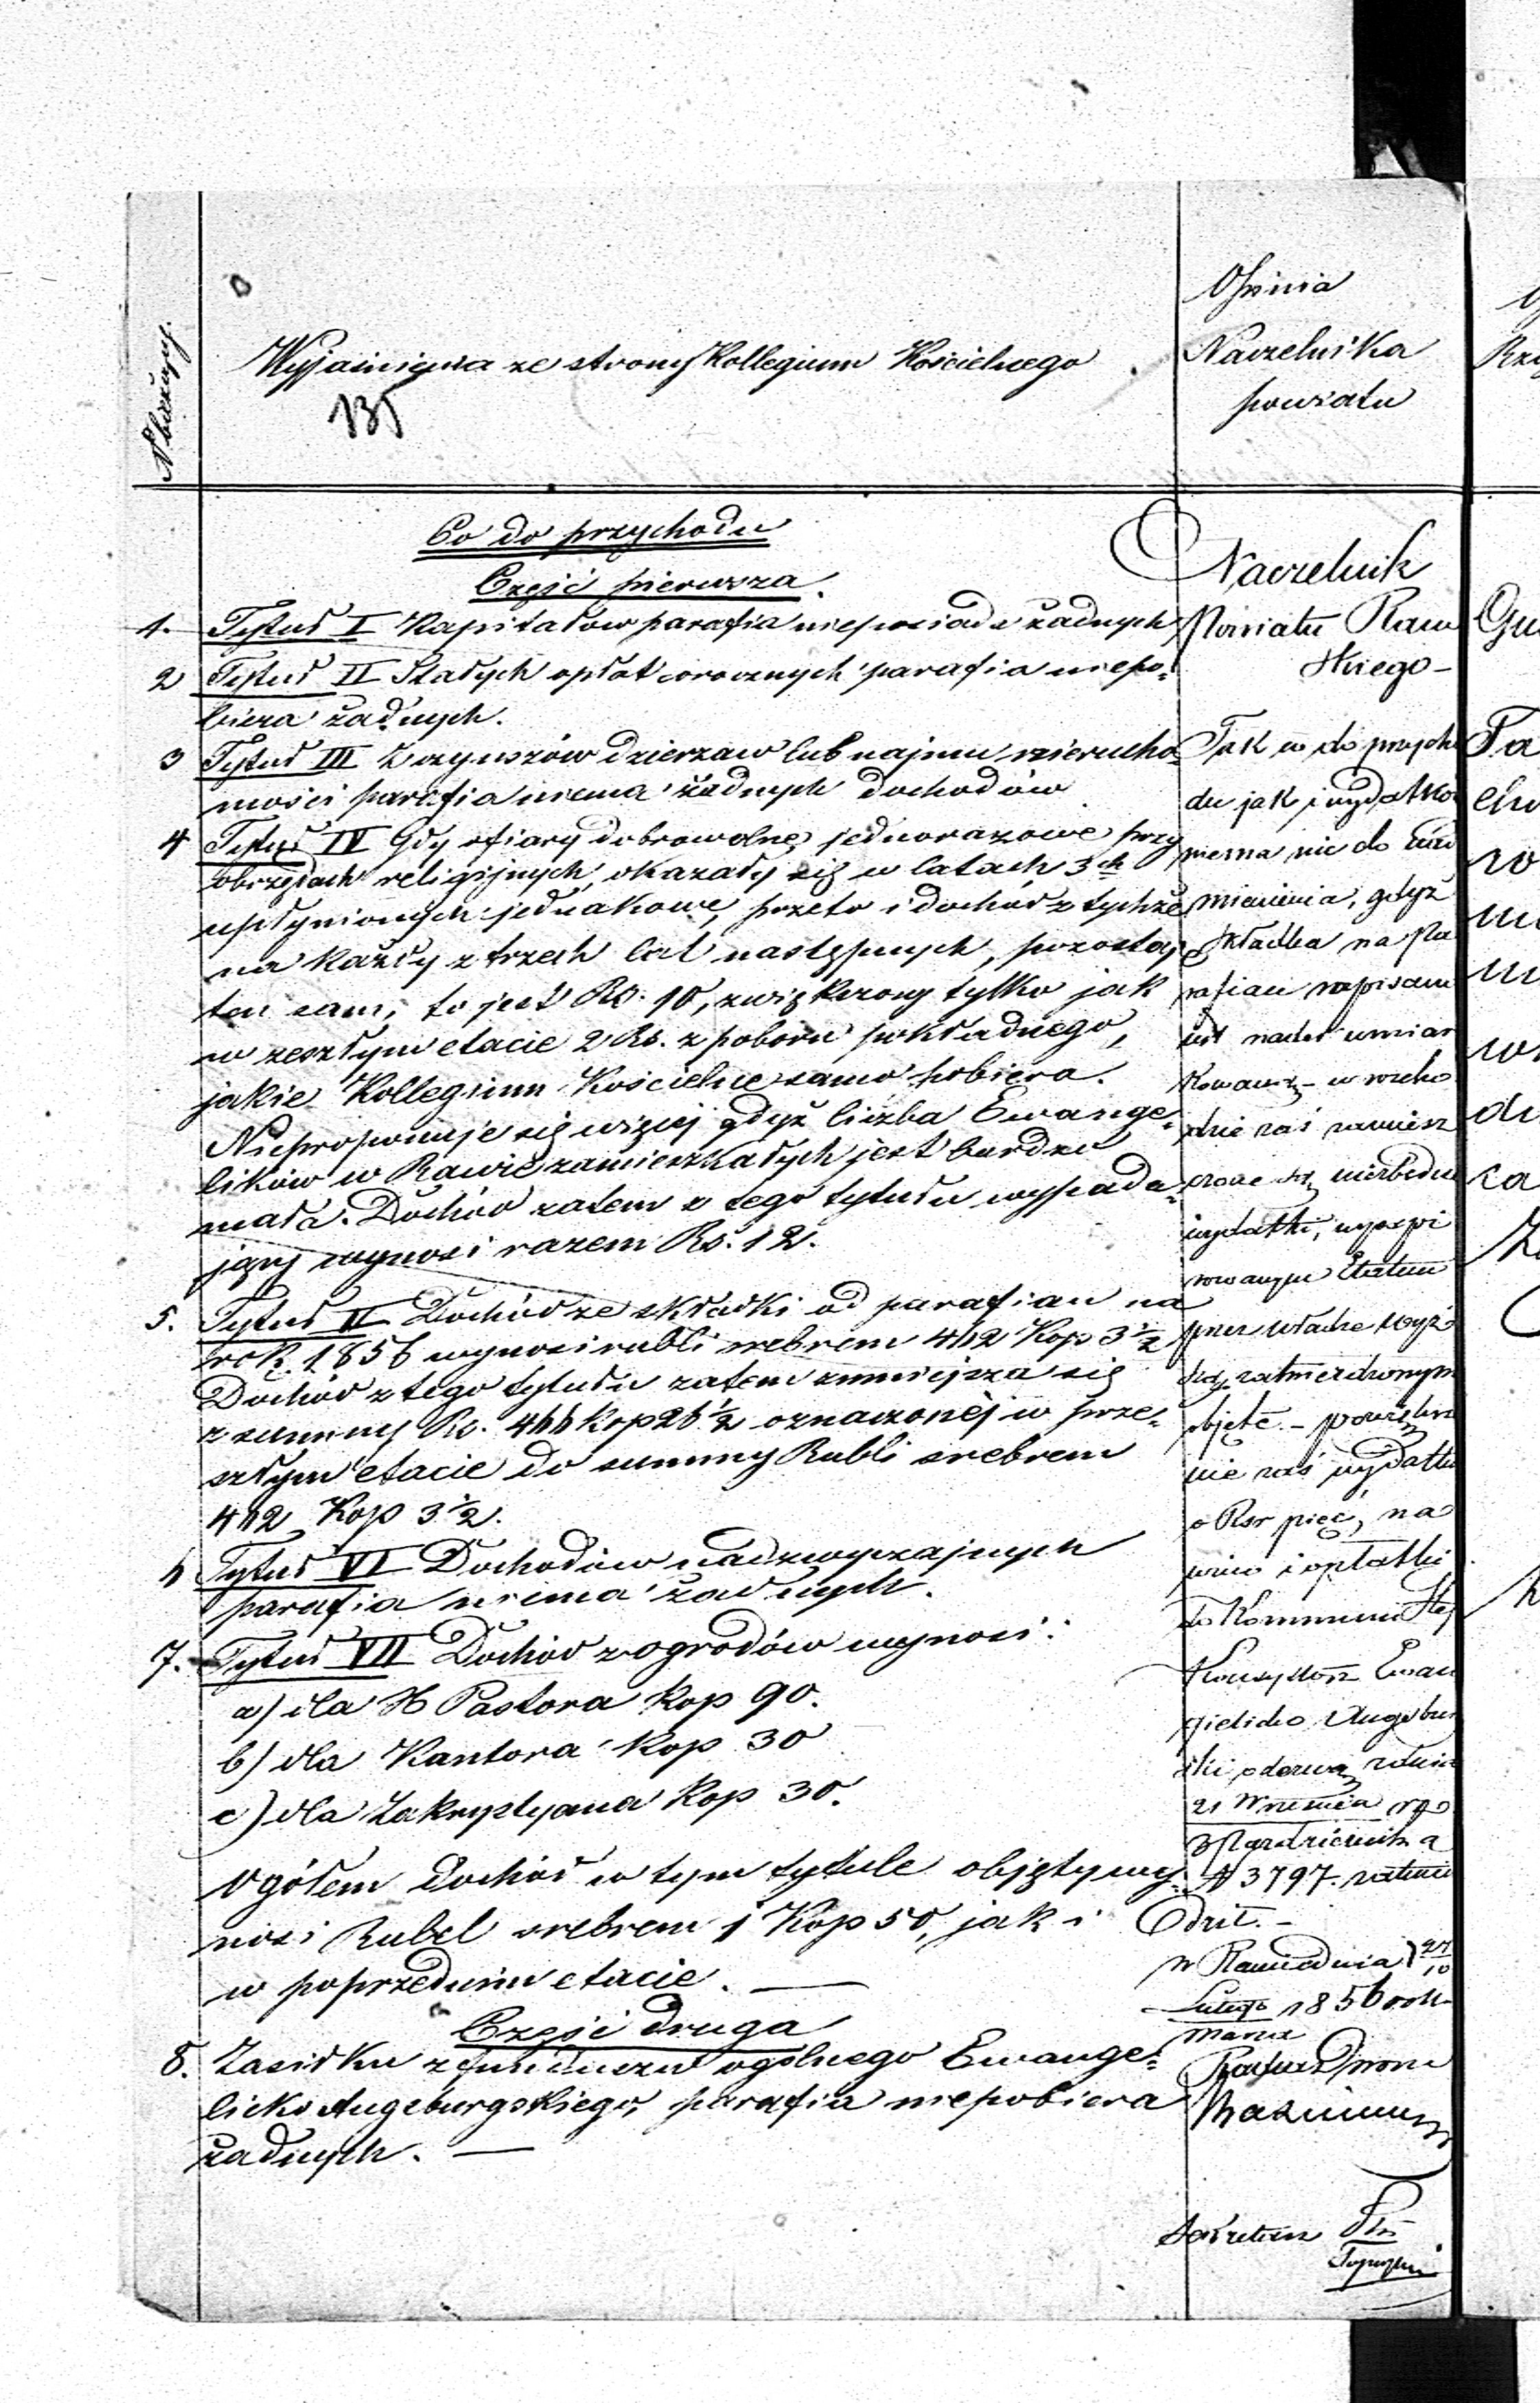 N bieżący.
Wyjaśnienia ze strony Kollegium Kościelnego
135
Opinia
Naczelnika
powiatu
Co do przychodu
Część pierwsza.
1. Tytuł I Kapitałów parafia nieposiada żadnych
2 Tytuł II Stałych opłat corocznych parafia niepo=
biera żadnych.
3 Tytuł III Z czynszów dzierzaw lub najmu nierucho=
mości parafia niema żadnych dochodów
4 Tytuł IV Gdy ofiary dobrowolne jednorazowe przy
obrzędach religijnych, okazały się w latach 3ch
upłynionych jednakowe, przeto i dochód z tychże
na każdy z trzech lat następnych, pozostaje
ten sam, to jest Rs. 10, zwiękrzony tylko jak
w zeszłym etacie 2 Rs. z poboru pokładnego,
jakie Kollegium Kościelne samo pobiera.
Nieproponuje się więcej gdyż liczba Ewange=
lików w Rawie zamieszkałych jest bardzo
mała. Dochód zatem z tego tytułu wypada=
jący wynosi razem Rs. 12.
5. Tytuł V Dochód ze składki od parafian na
rok 1856 wynosi rubli srebrem 462 Kop 3 1/2
Dochód z tego tytułu zatem zmniejsza się
z summy Rs. 466 Kop 26 1/2 oznaczonéj w prze=
szłym etacie do summy Rubli srebrem
462 Kop 3 1/2.
6 Tytuł VI Dochodów nadzwyczajnych
parafia niema żadnych.
7. Tytuł VII Dochód z ogrodów wynosi:
a) dla X Pastora Kop 90.
b) dla Kantora Kop 30
c) dla Zakrystyana Kop 30.
Ogółem dochód w tym tytule objęty wy=
nosi Rubel srebrem 1 Kop 50, jak i
w poprzednim etacie. —
Część druga
8. Zasiłku z funduszu ogólnego Ewange=
licko Augsburgskiego, parafia niepobiera
żadnych. —
Naczelnik
Powiatu Raw
skiego -
Tak co do przycho
du jak i wydatków
niema nic do nad
mienienia, gdyż
składka na Pa
rafian rozpisana
jest nader umiar
kowaną - w rozcho
dzie zaś zamiesz
czone są niezbędne
wydatki,
Etatem
przez władze wyż
szą zatwierdzonym
objęte. - powięks
nie zaś wydatku
o Rsr pięć, na
wino i opłatki
do Kommunii Stej
Konsystorz Ewan
gielicko Augsbur
ski odezwą z dnia
21 Września
3 Października
N 3797 zatwier
dził. -
w Rawie dnia 27/10
Lutego 1856 roku
Marca
Sekretarz